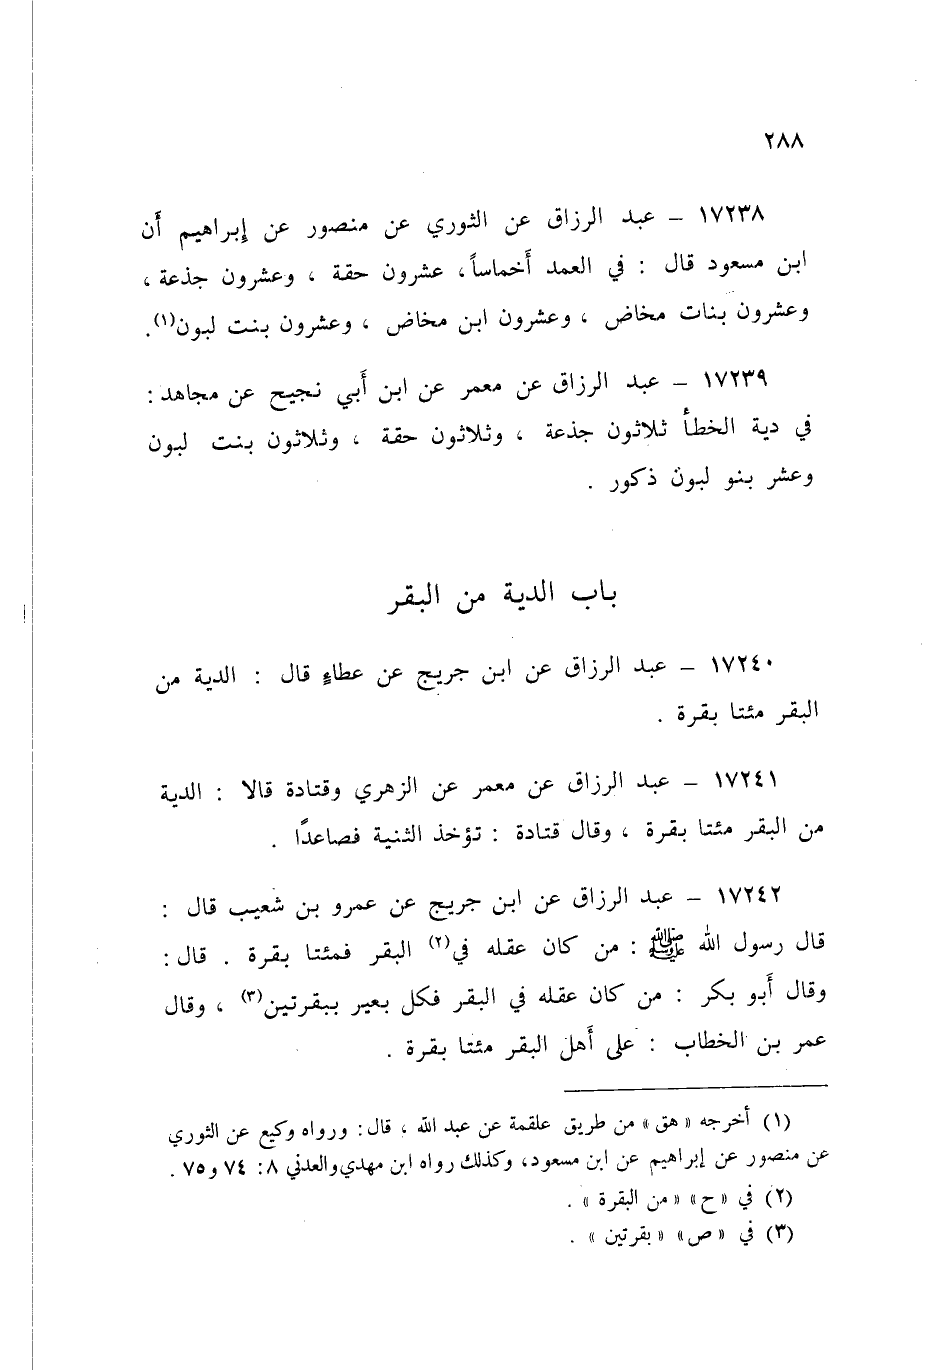 ٢٨٨
١٧٢٣٨ – عبد الرزاق عن الثوري عن منصور عن إبراهيم أن
ابن مسعود قال : في العمد أخماساً، عشرون حقة ، وعشرون جذعة ،
وعشرون بنات مخاض ، وعشرون ابن مخاض ، وعشرون بنت لبون(١).
١٧٢٣٩ – عبد الرزاق عن معمر عن ابن أبي نجيح عن مجاهد :
في دية الخطأ ثلاثون جذعة ، وثلاثون حقة ، وثلاثون بنت لبون
وعشر بنو لبون ذكور .
باب الدية من البقر
١٧٢٤٠ – عبد الرزاق عن ابن جريج عن عطاءٍ قال : الدية من
البقر مئتا بقرة .
١٧٢٤١ – عبد الرزاق عن معمر عن الزهري وقتادة قالا : الدية
من البقر مئتا بقرة ، وقال قتادة : تؤخذ الثنية فصاعدًا .
١٧٢٤٢ – عبد الرزاق عن ابن جريج عن عمرو بن شعيب قال :
قال رسول الله ﷺ : من كان عقله في(٢) البقر فمئتا بقرة . قال :
وقال أبو بكر : من كان عقله في البقر فكل بعير ببقرتين(٣) ، وقال
عمر بن الخطاب : على أهل البقر مئتا بقرة .
(١) أخرجه « هق » من طريق علقمة عن عبد الله ، قال : ورواه وكيع عن الثوري
عن منصور عن إبراهيم عن ابن مسعود، وكذلك رواه ابن مهدي والعدني ٨: ٧٤ و٧٥ .
(٢) في « ح » « من البقرة » .
(٣) في « ص » « بقرتين » .